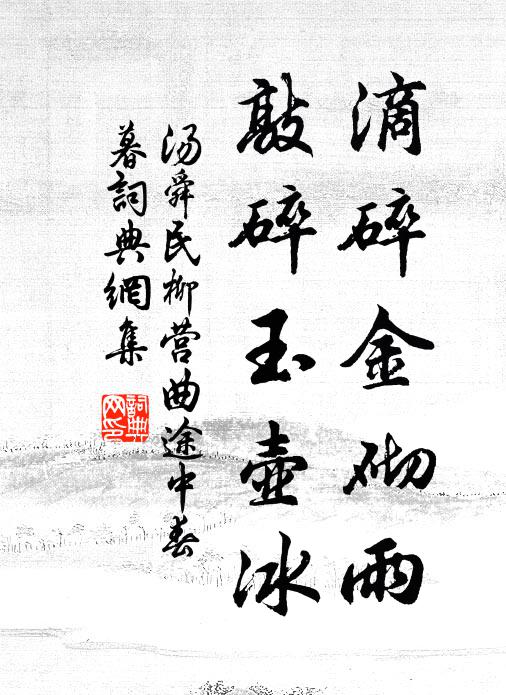 滴碎金砌雨
敲碎玉壺冰
汤舜民柳营曲途中春
暮詞典網集
詞典
网印